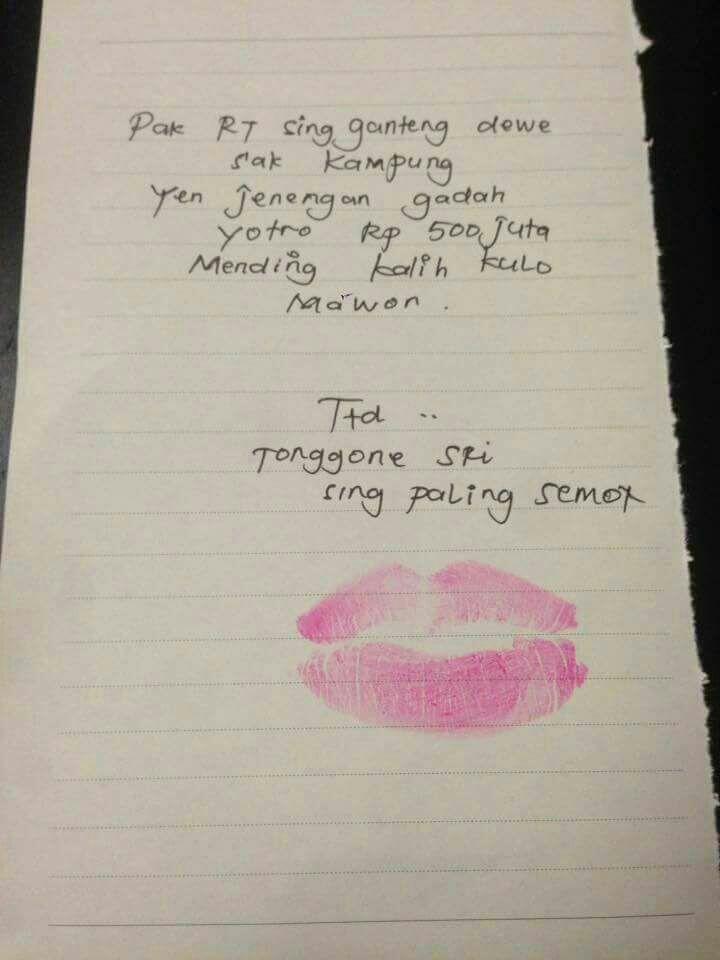 Pak RT sing ganteng dewe
sak kampung
Yen jenengan gadah
yotro Rp 500 juta
Mending kalih kulo
Mawon.
Ttd ..
Tonggone SRi
sing paling semox